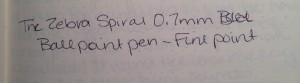 The Zebra Spiral 0.7mm
Ballpoint pen - Fine point